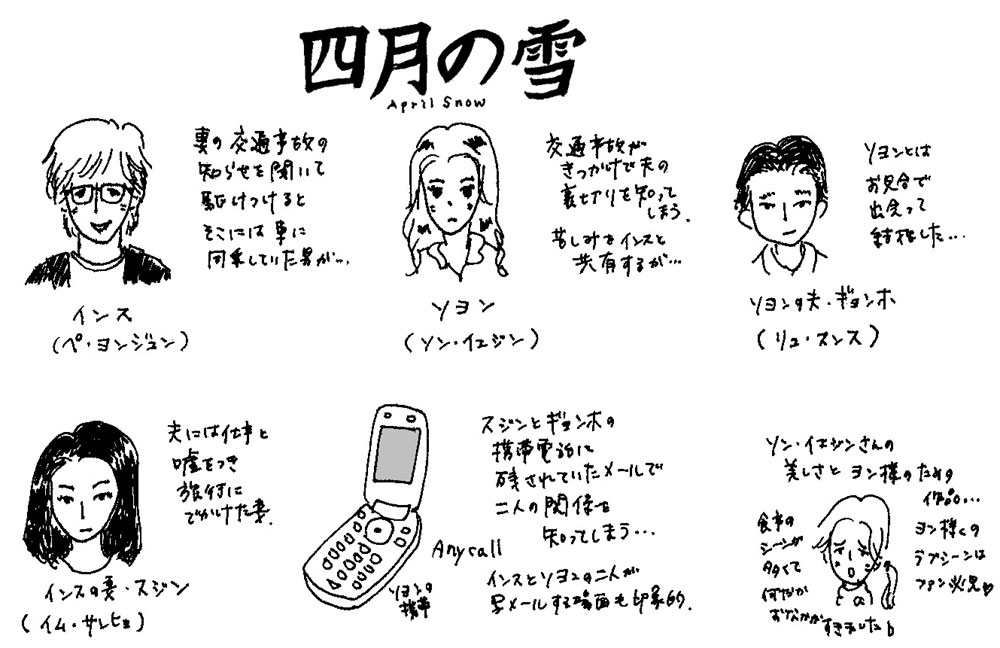 四月の雪
April Snow
妻の交通事故の
知らせを聞いて
駆けつけると
そこには車に
同乗していた男が…
インス
(ペ・ヨンジュン)
交通事故が
きっかけで夫の
裏切りを知って
しまう。
苦しみをインスと
共有するが…
ソヨン
(ソン・イェジン)
ソヨンとは
お見合で
出会って
結婚した…
ソヨンの夫・ギョンホ
(リュ・スンス)
夫には仕事と
嘘をつき
旅行に
でかけた妻。
インスの妻・スジン
(イム・サンヒョ)
Anycall
ソヨンの
携帯
スジンとギョンホの
携帯電話に
残されていたメールで
二人の関係を
知ってしまう…
インスとソヨンの二人が
写メールする場面も印象的。
ソン・イェジンさんの
美しさとヨン様のための
作品…
ヨン様の
ラブシーンは
ファン必見♡
食事の
シーンが
多くて
何だか
おなかが
すきました